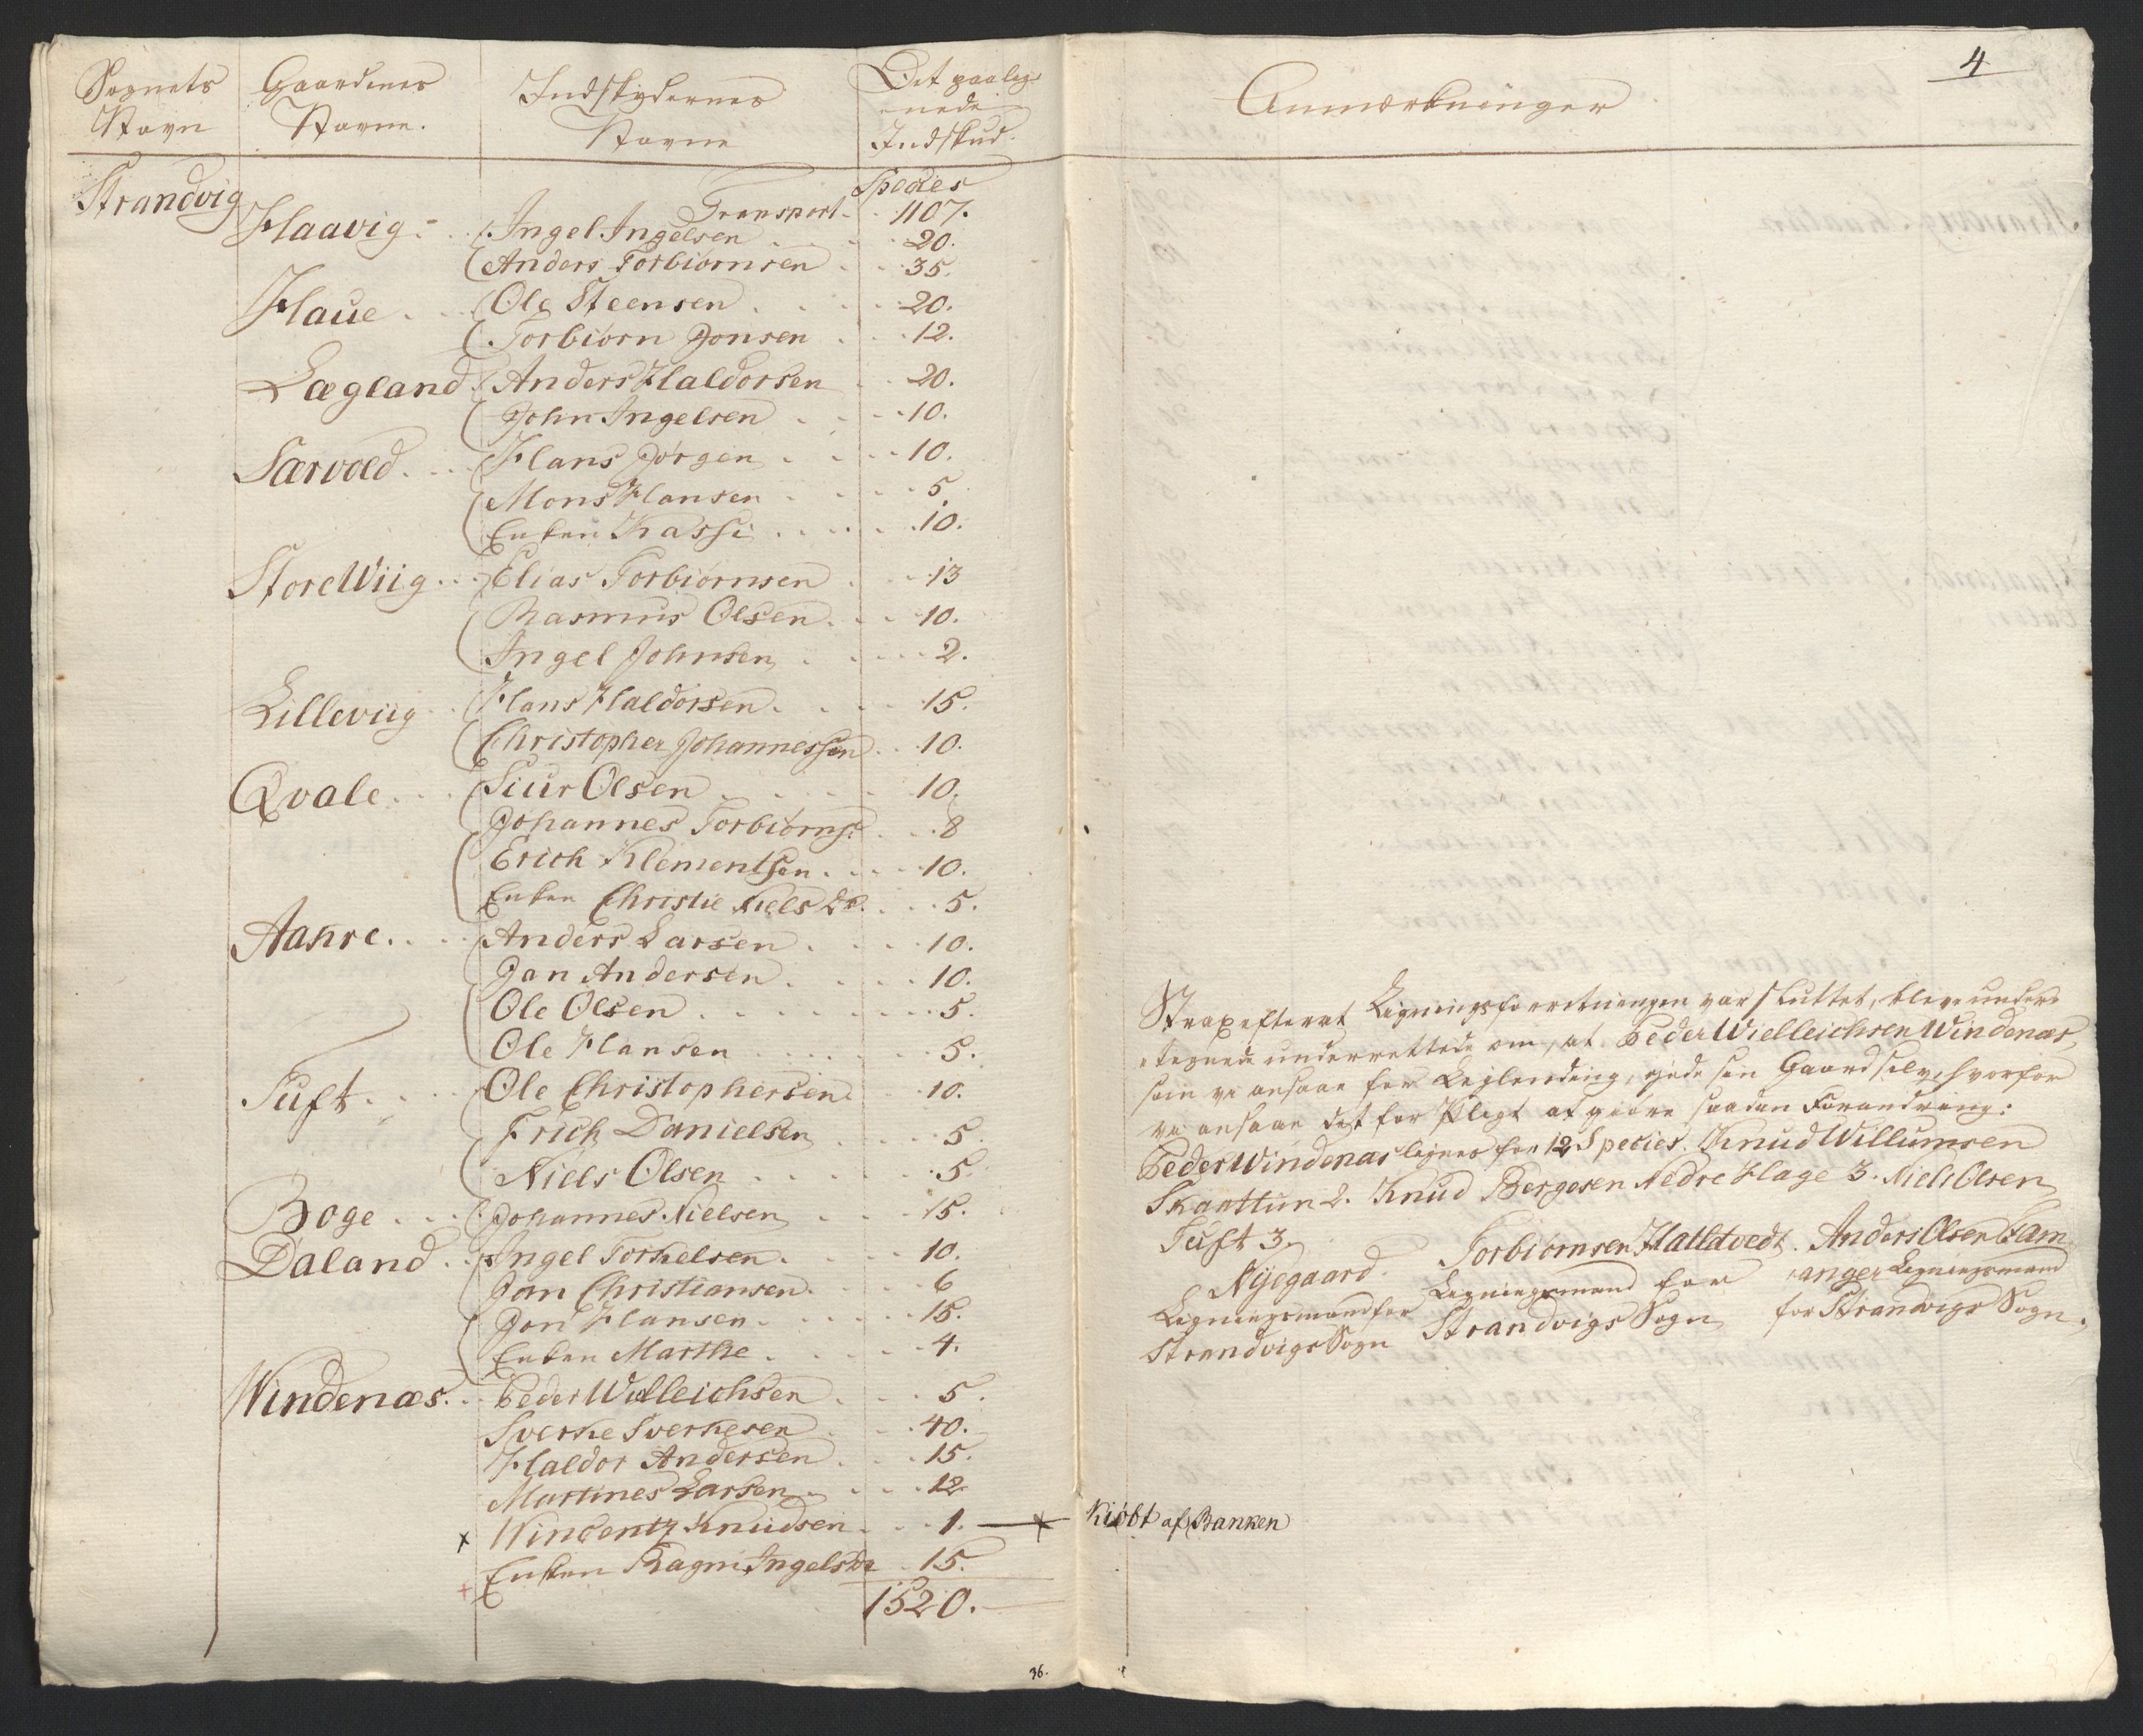 Sognets Navn | Gaardenes Navne. | Indskydernes Navne | Det paalignede Indskud.
Species
Strandvig Transport. 1107.
Haavig. Ingel Ingelsen 20.
Anders Torbiörnsen 35.
Haue. Ole Steensen 20.
Torbiörn Jonsen 12.
Lægland Anders Haldorsen 20.
John Ingelsen 10.
Særvold. Hans Jörgen 10.
Mons Hansen 5.
Enken Kassi 10.
Store Wiig. Elias Torbiörnsen 13
Rasmus Olsen 10.
Ingel Johnsen 2.
Lilleviig Hans Haldorsen 15.
Christopher Johannessen 10.
Qvale. Siur Olsen 10.
Johannes Torbiörns: 8
Erich Klementsen 10.
Enken Christie Niels Dr. 5.
Aakre. Anders Larsen 10.
Jan Andersen 10.
Ole Olsen 5.
Ole Hansen 5.
Tuft. Ole Christophersen 10.
Erich Danielsen 5.
Niels Olsen 5.
Boge. Johannes Nielsen 15.
Daland. Ingel Torkelsen 10.
Jan Christiansen 6
Jon Hansen 15.
Enken Marthe 4.
Windenæs. Peder Wielleichsen 5.
Sverke Sverkesen 40.
Haldor Andersen 15.
Martines Larsen 12
x Windentz Knudsen 1. — x Kiöbt af Banken
+ Enken Ragni Ingels Dr 15.
1520.
36.
4
Anmærkninger
Strax efterat Ligningsforretningen var sluttet, bleve under-
tegnede underrettede om, at Peder Wielleichsen Windenæs,
som vi ansaae for Leilending, ejede sin Gaard selv, hvorfor
vi ansaae det for Pligt at giöre saadan Forandring:
Peder Windenæs lignes for 12 Species. Knud Willumsen
Skaattun 2. Knud Bergesen Nedre Hage 3. Niels Olsen
Tuft 3.
Nÿegaard. Torbiörnsen Halldtvedt. Anders Olsen Sam-
Ligningsmand for Ligningsmand for anger Ligningsmand
Strandvigs Sogn Strandvigs Sogn for Strandvigs Sogn.